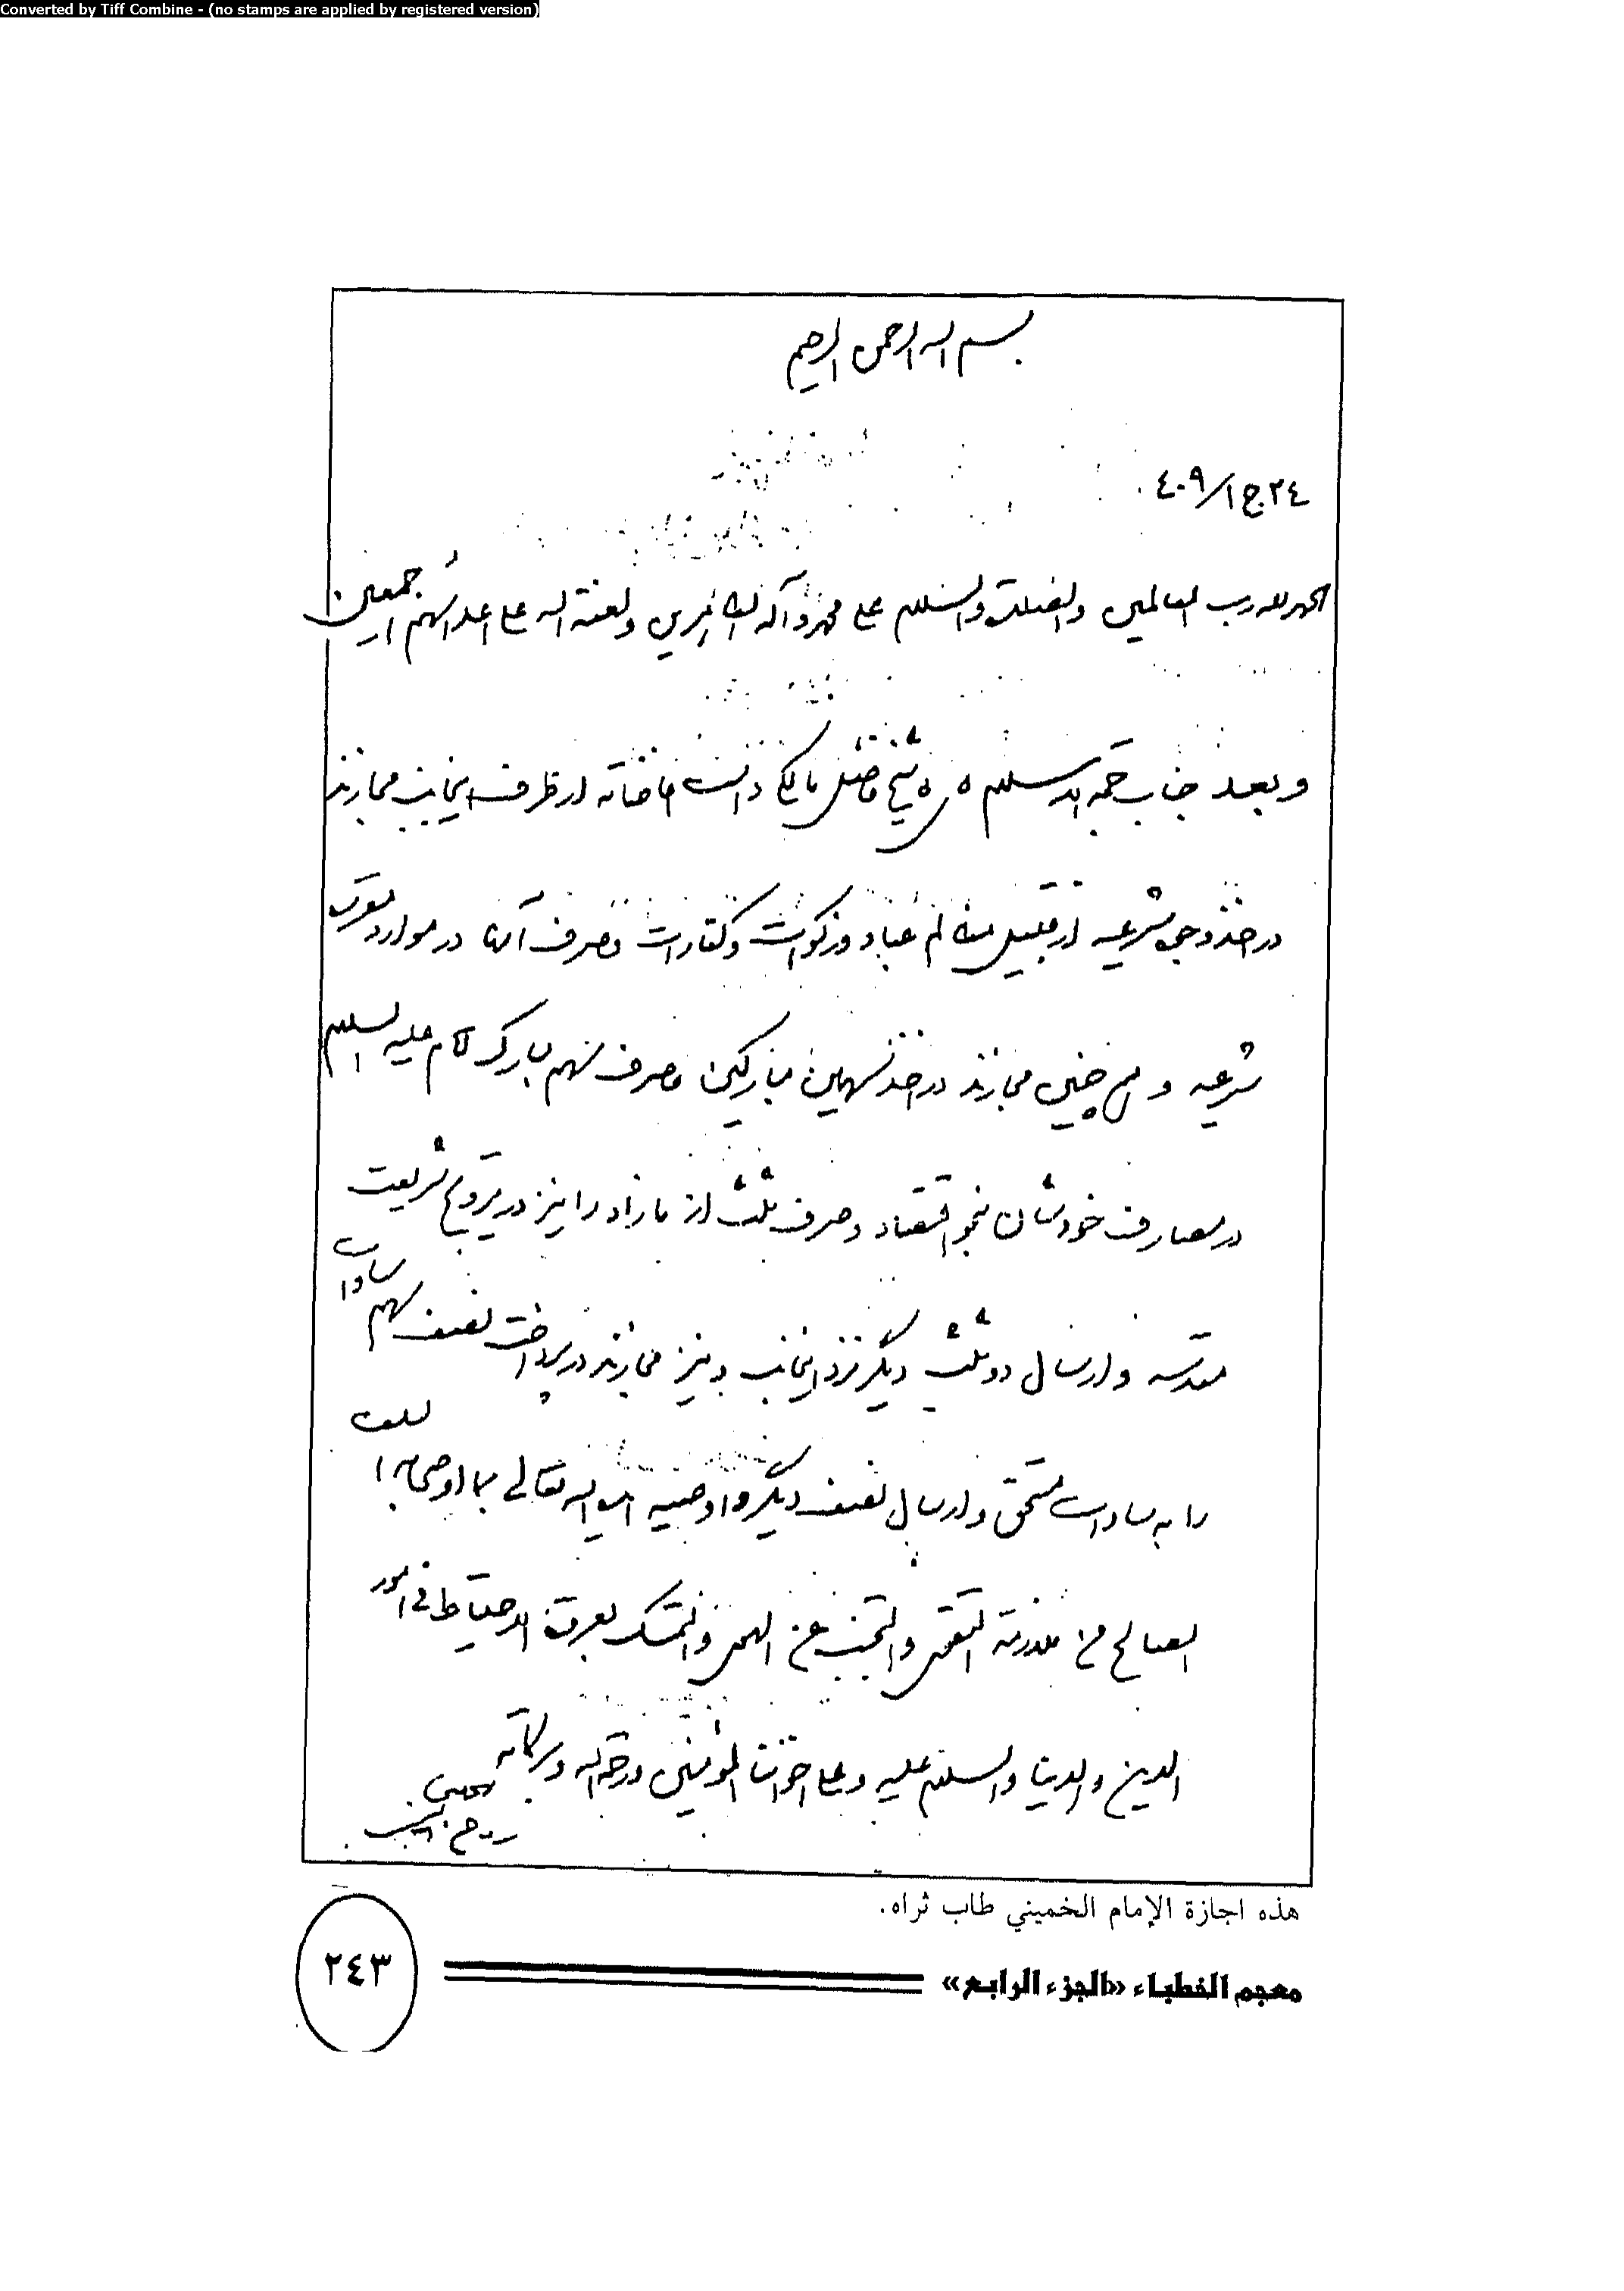 Converted by Tiff Combine - (no stamps are applied by registered version)
بسم الله الرحمن الرحيم
٢٤ ج ١/٤٠٩
الحمد لله رب العالمين والصلاة والسلام على محمد وآله الطاهرين ولعنة الله على اعدائهم اجمعين
وبعد جناب حجة الاسلام شيخ فاضل مالكى دامت افاضاته از طرف اينجانب مجازند
در اخذ وجوه شرعيه از قبيل مظالم عباد وزكوات وكفارات وصرف آنها در موارد مقرره
شرعيه و هم چنين مجازند در اخذ سهمين مباركين وصرف سهم مبارك امام عليه السلام
در مصارف خودشان بنحو اقتصاد وصرف ثلث از مازاد را نيز در ترويج شريعت
مقدسه وارسال دو ثلث ديگر نزد اينجانب ونيز مجازند در پرداخت نصف سهم سادات
را به سادات مستحق وارسال نصف ديگر واوصيه ايده الله تعالى بما اوصى به السلف
الصالح من ملازمة التقوى والتجنب عن الهوى والتمسك بعروة الاحتياط في امور
الدين والدنيا والسلام عليه وعلى اخواننا المؤمنين ورحمة الله وبركاته
روح الله الموسوي الخميني
هذه اجازة الإمام الخميني طاب ثراه.
معجم الخطباء «الجزء الرابع»
٢٤٣